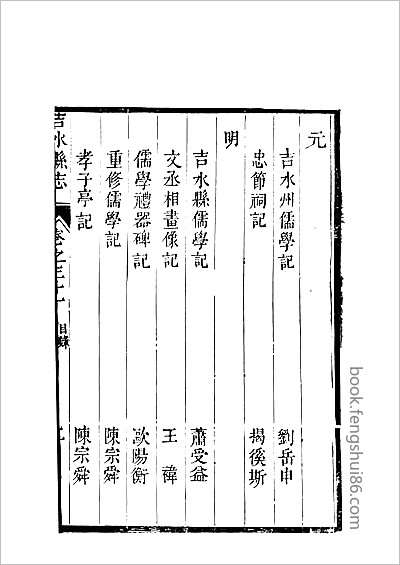 元
吉水州儒學記 劉岳申
忠節祠記 揭傒斯
明
吉水縣儒學記 蕭受益
文丞相畫像記 王褘
儒學禮器碑記 歐陽衡
重修儒學記 陳宗舜
孝子亭記 陳宗舜
吉水縣志 卷之三十一 目錄
book.fengshui86.com